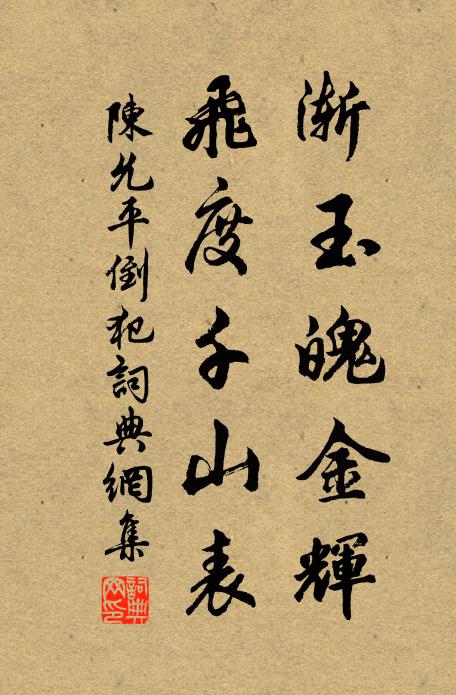 漸玉魄金輝
飛度千山表
陳允平倒犯詞典網集
詞典網印